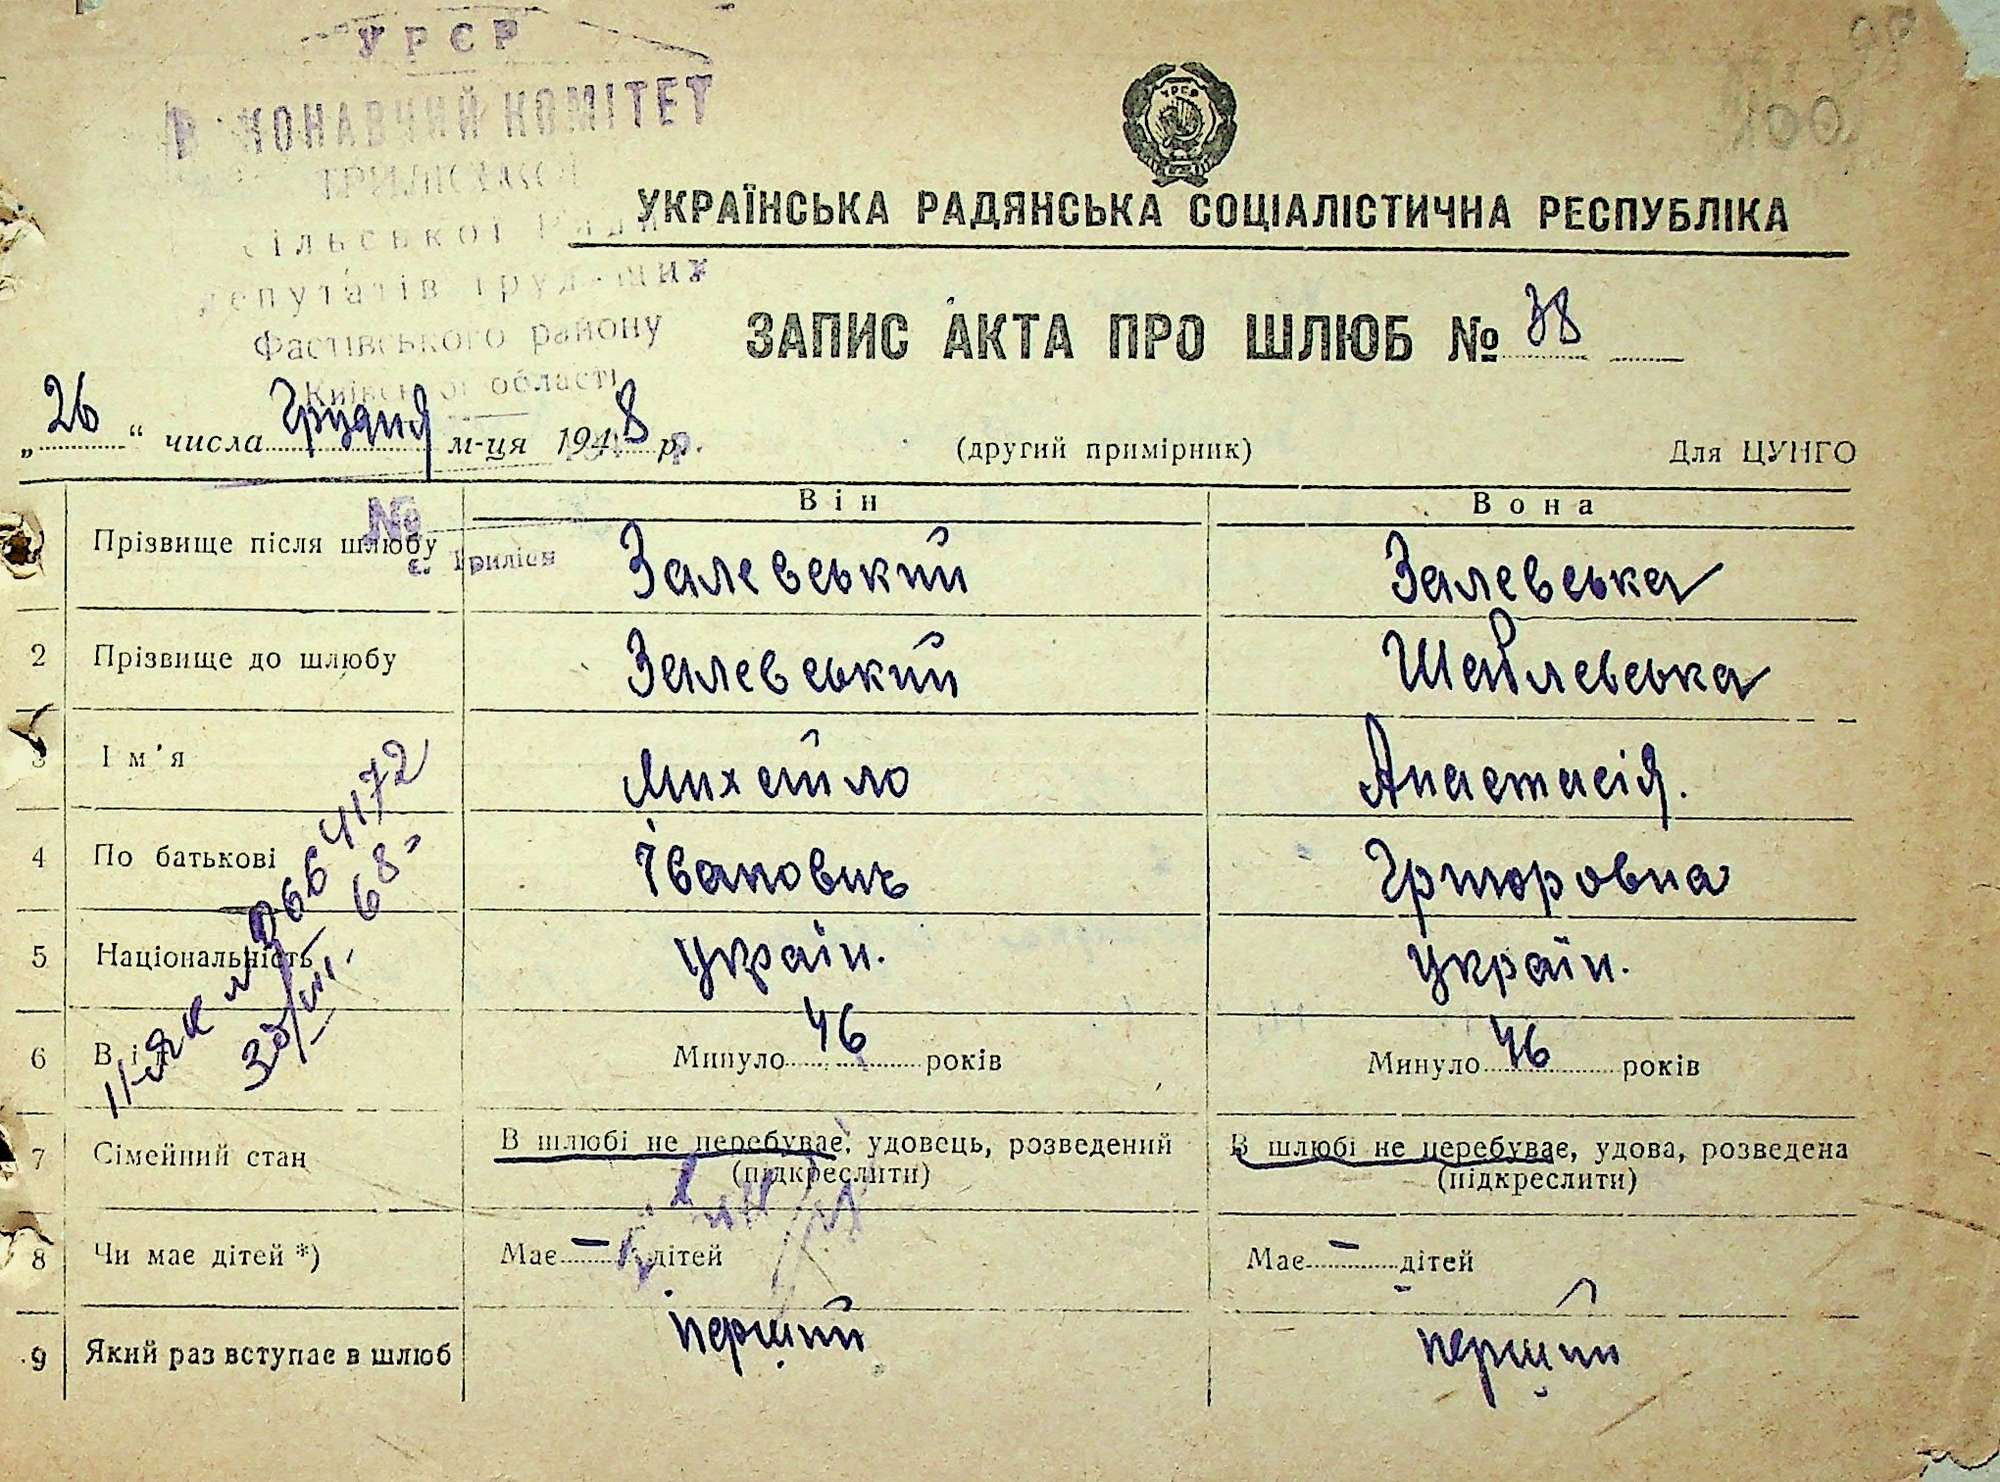 УРСР
ВИКОНАВЧИЙ КОМІТЕТ
ТРИЛІСЬКОЇ
сільської Ради
депутатів трудящих
Фастівського району
Київської області
№
с. Триліси
УРСР
УКРАЇНСЬКА РАДЯНСЬКА СОЦІАЛІСТИЧНА РЕСПУБЛІКА
ЗАПИС АКТА ПРО ШЛЮБ № 38
„26“ числа Грудня м-ця 1948 р.
(другий примірник)
Для ЦУНГО
Він Вона
Прізвище після шлюбу Залевський Залевська
2 Прізвище до шлюбу Залевський
3 Ім'я Михайло Анастасія.
4 По батькові Івановић Григоровна
5 Національність україн. україн.
6 Вік Минуло 46 років Минуло 46 років
7 Сімейний стан В шлюбі не перебуває, удовець, розведений В шлюбі не перебуває, удова, розведена
(підкреслити) (підкреслити)
8 Чи має дітей *) Має – дітей Має – дітей
9 Який раз вступає в шлюб перший перший